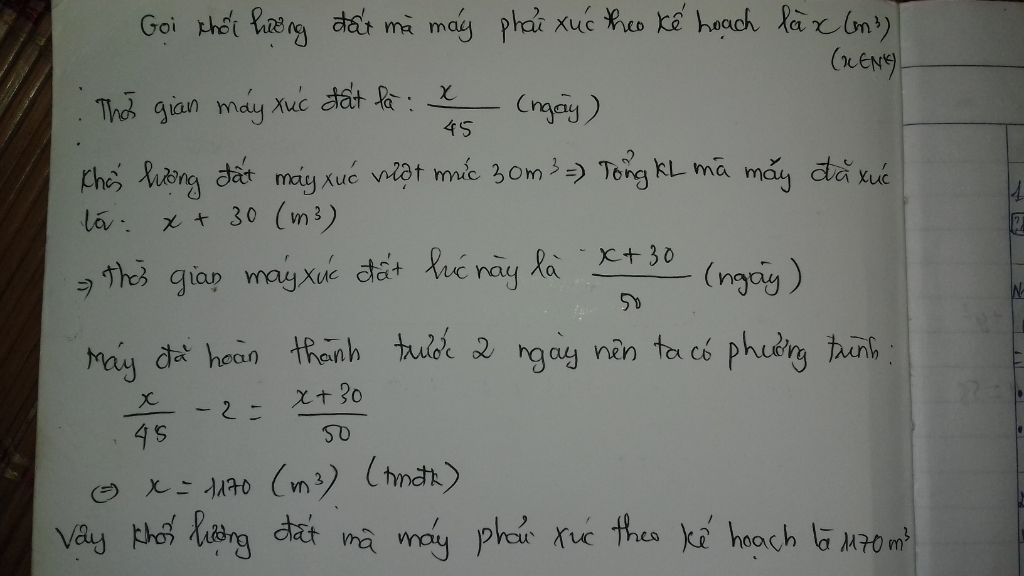 Gọi khối lượng đất mà máy phải xúc theo kế hoạch là x (m³)
(x∈N*)
Thời gian máy xúc đất là: x/45 (ngày)
Khối lượng đất máy xúc vượt mức 30m³ => Tổng KL mà máy đã xúc
là: x + 30 (m³)
=> Thời gian máy xúc đất lúc này là x+30/50 (ngày)
Máy đã hoàn thành trước 2 ngày nên ta có phương trình:
x/45 - 2 = x+30/50
<=> x = 1170 (m³) (tmđk)
Vậy khối lượng đất mà máy phải xúc theo kế hoạch là 1170m³